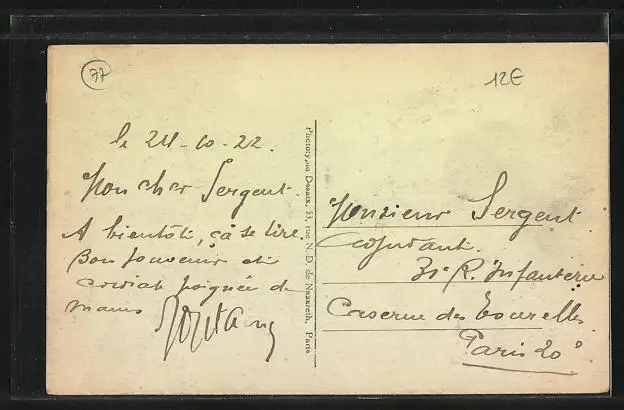 77
12E
le 24-10-22.
Mon cher Sergent.
A bientôt, ça se tire.
Bon souvenir et
cordial poignée de
mains
Phototypie Desaix, 33, rue N.-D. de Nazareth, Paris
Monsieur Sergent
adjudant.
31e R. Infanterie
Caserne des Tourelles
Paris 20e